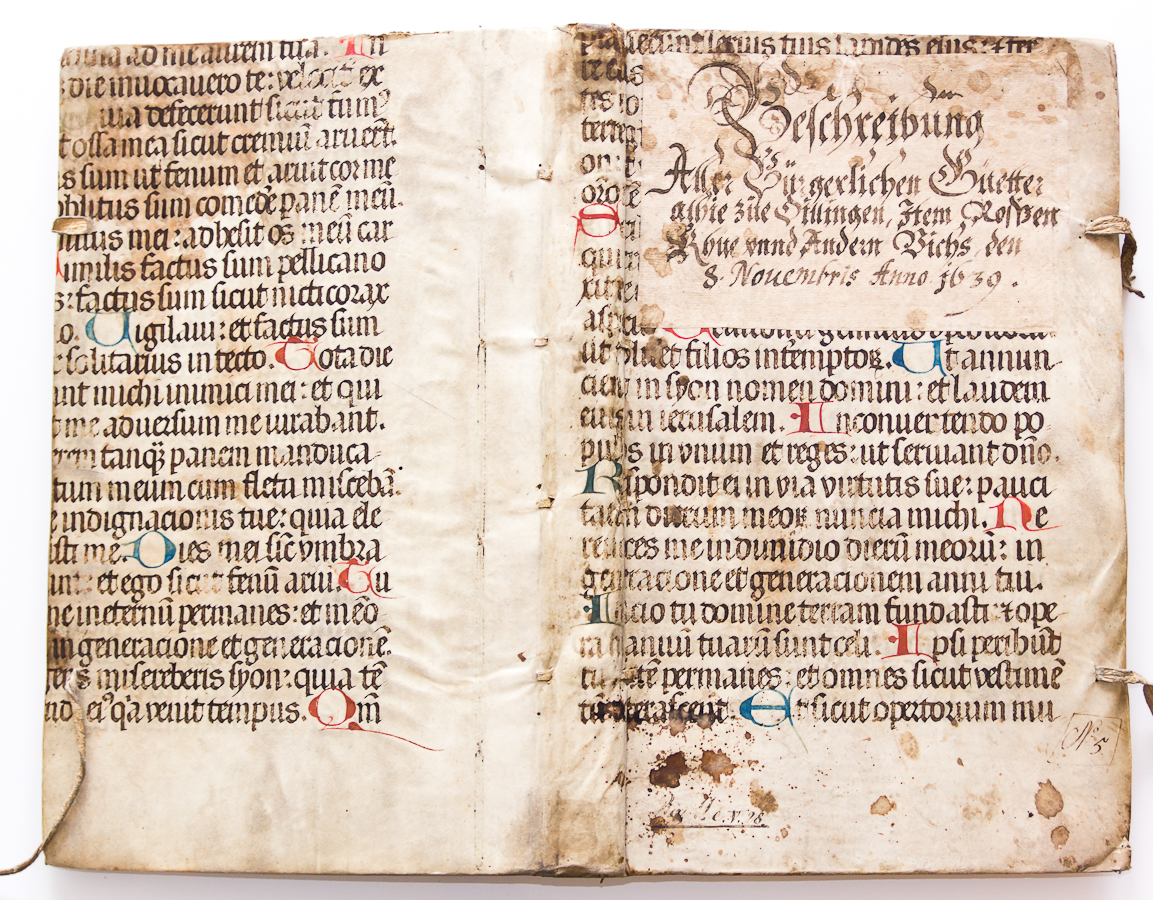 ad me aurem tua. In
die inuocauero te: velocit ex
defecerunt sicut fum⁹
ossa mea sicut cremiū aruert.
s sum ut fenum et aruit cor me
oblitus sum comedē panē meū.
mei: adhesit os meū car
imilis factus sum pellicano
s: factus sum sicut nicticorax
o. Uigilaui: et factus sum
solitarius in tecto. Tota die
ant michi inimici mei: et qui
me aduersum me iurabant.
erem tanqȝ panem manduca-
tum meum cum fletu miscebā.
e indignacionis tue: quia ele
isti me. Dies mei sic̄ vmbra
et ego sicut fenū arui. Tu
ne ineternū permanes: et meō
in generacione et generacionē.
misereberis syon: quia tē
ei⁹ qꝛa venit tempus. Qm̄
seruis tuis lapides eius: ⁊ ter
Beschreibung
Aller Bürgerlichen Güetter
alhie züe Dillingen, Item Rosßen
Khüe vnnd Andern Vichs, den
8. Nouembris Anno 1639.
et filios intemptoꝝ. Ut annun
in syon nomen domini: et laudem
eius in ierusalem. In conuertendo po
pulos in vnum et reges: ut seruiant dn̄o.
Respondit ei in via virtutis sue: pauci
tatem dierum meoꝝ nuncia michi. Ne
reuoces me in dimidio dierū meorū: in
generacione et generacionem anni tui.
Inicio tu domine terram fundasti: ⁊ ope
ra manuū tuarū sunt celi. Ipsi peribūt
tu autē permanes: et omnes sicut vestimē
tū veterascent. Et sicut opertorium mu
Nº 5